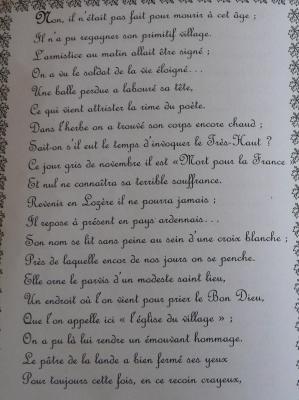 Non, il n'était pas fait pour mourir à cet âge ;
Il n'a pu regagner son primitif village.
L'armistice au matin allait être signé ;
On a vu le soldat de la vie éloigné...
Une balle perdue a labouré sa tête,
Ce qui vient attrister la rime du poète.
Dans l'herbe on a trouvé son corps encore chaud ;
Sait-on s'il eut le temps d'invoquer le Très-Haut ?
Ce jour gris de novembre il est «Mort pour la France
Et nul ne connaîtra sa terrible souffrance.
Revenir en Lozère il ne pourra jamais ;
Il repose à présent en pays ardennais...
Son nom se lit sans peine au sein d'une croix blanche ;
Près de laquelle encor de nos jours on se penche.
Elle orne le parvis d'un modeste saint lieu,
Un endroit où l'on vient pour prier le Bon Dieu,
Que l'on appelle ici « l'église du village » ;
On a pu là lui rendre un émouvant hommage.
Le pâtre de la lande a bien fermé ses yeux
Pour toujours cette fois, en ce recoin crayeux,